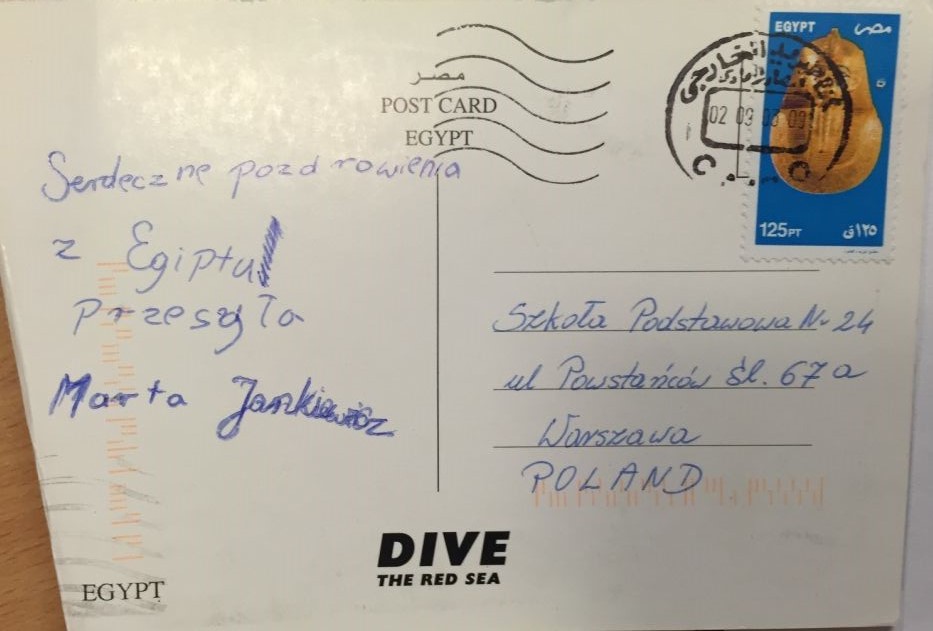 مصر
POST CARD
EGYPT
Serdeczne pozdrowienia
z Egiptu
Przesyła
Marta Jankiewicz
EGYPT مصر
125PT ١٢٥ق
02 09 03 09
Szkoła Podstawowa Nr 24
ul Powstańców Śl. 67a
Warszawa
POLAND
DIVE
THE RED SEA
EGYPT